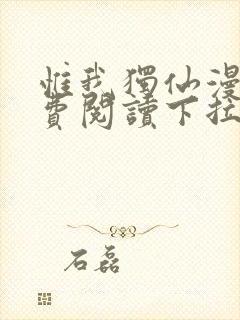 惟我獨仙漫
費閱讀下拉
石磊